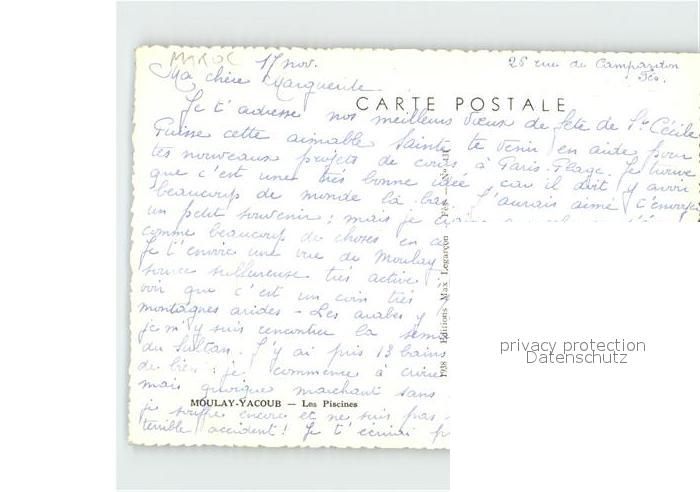 MAROC 17 nov. 26 rue du
Fès.
Ma chère Marguerite
CARTE POSTALE
Je t'adresse nos meilleurs vœux de fête de Ste Cécile
Puisse cette aimable Sainte te venir en aide pour
tes nouveaux projets de cours à Paris-Plage. Je trouve
que c'est une très bonne idée, car il doit y avoir
beaucoup de monde là-bas. J'aurais aimé t'envoyer
un petit souvenir; mais je
comme beaucoup de choses en ce
Je t'envoie une vue de Moulay
source sulfureuse très active
voir que c'est un coin très
montagnes arides - Les arabes y
je m'y suis rencontrée la
du Sultan. J'y ai pris 13 bains
de bien; je commence à
mais quoique marchant sans
MOULAY-YACOUB — Les Piscines
je souffre encore et ne suis pas
terrible accident! Je t'écrirai
1938 Editions Max Legarçon Fès
privacy protection
Datenschutz